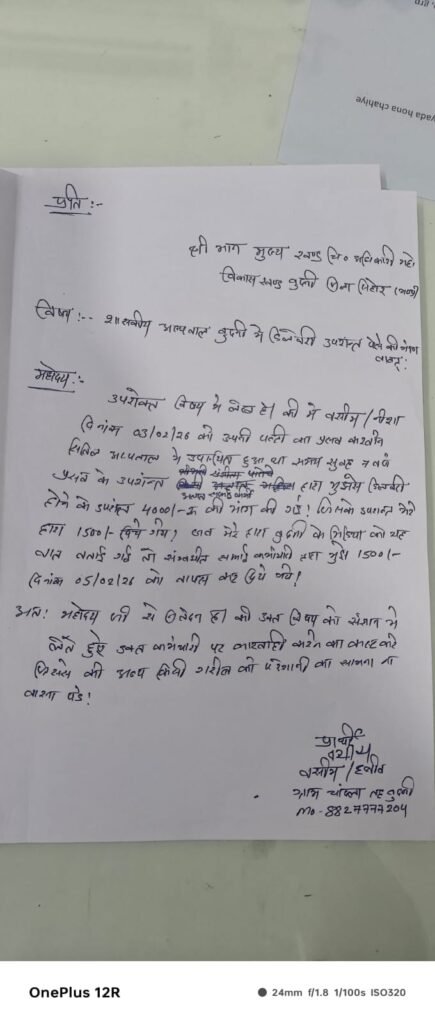 yada hona chahiye
प्रति :-
श्री मान मुख्य खण्ड चि० अधिकारी महो
विकास खण्ड बुदनी जिला सिहोर (म.प्र)
विषय :-- शासकीय अस्पताल बुदनी मे डिलेवरी उपरान्त पैसे की मांग
बाबद्
महोदय :-
उपरोक्त विषय मे लेख है। की मे वसीम /
दिनांक 03/02/26 को अपनी पत्नी का प्रसव कराने
सिविल अस्पताल मे उपस्थित हुआ था समय सुबह 7 बजे
प्रसव के उपरान्त द्वारा मुझसे डिलेवरी
होने के उपरांत 4000/-रू की मांग की गई! जिसके उपरान्त मेरे
द्वारा 1500/- दिये गये! जब मेरे द्वारा बुदनी के मिडिया को यह
बात बताई गई तो संबन्धीत सफाई कर्मचारी द्वारा मुझे 1500/-
दिनांक 05/02/26 को वापस कर दिये गये!
अतः महोदय जी से निवेदन है। की उक्त विषय को संज्ञान मे
लेते हुऐ उक्त कर्मचारी पर कारवाही करने का कष्ट करे
जिससे की अन्य किसी गरीब को परेशानी का सामना ना
करना पडे!
प्रार्थी
वसीम
वसीम /
ग्राम तह बुदनी
Mo - 8827777204
OnePlus 12R
24mm f/1.8 1/100s ISO320